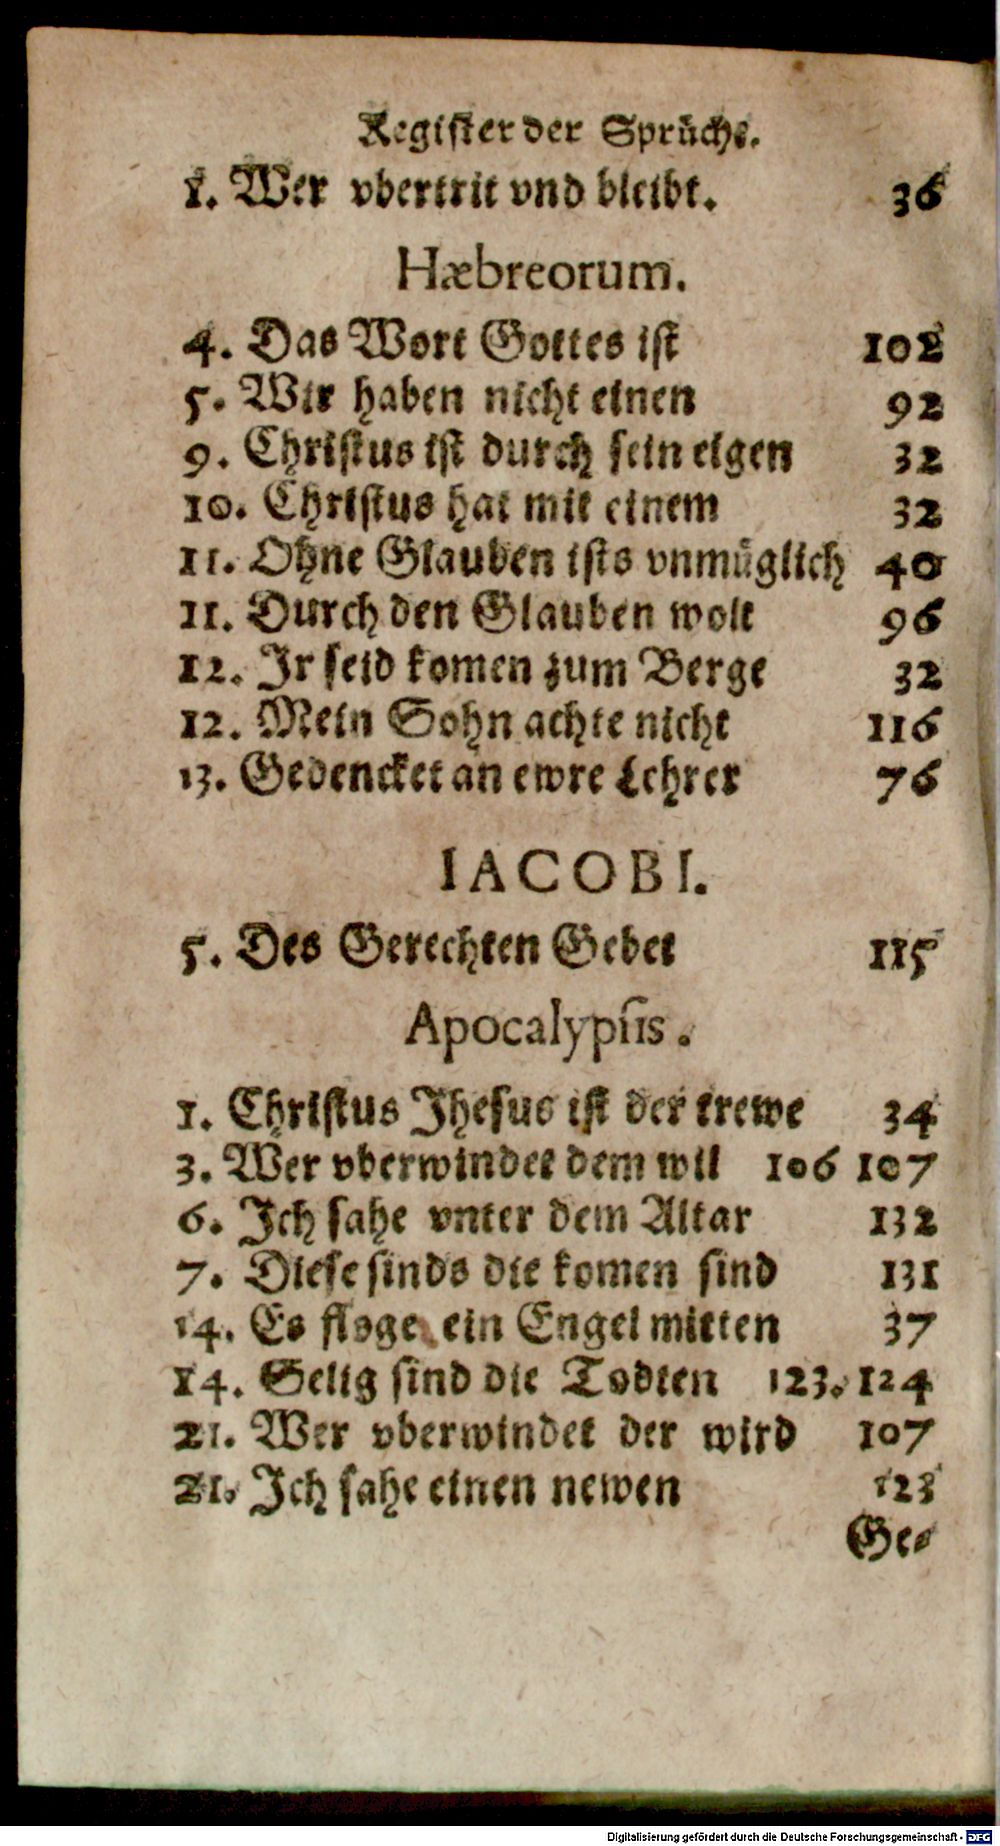 Register der Sprüche.
1. Wer vbertrit vnd bleibt. 36
Hæbreorum.
4. Das Wort Gottes ist 102
5. Wir haben nicht einen 92
9. Christus ist durch sein eigen 32
10. Christus hat mit einem 32
11. Ohne Glauben ists vnmüglich 40
11. Durch den Glauben wolt 96
12. Jr seid komen zum Berge 32
12. Mein Sohn achte nicht 116
13. Gedencket an ewre Lehrer 76
IACOBI.
5. Des Gerechten Gebet 115
Apocalypsis.
1. Christus Jhesus ist der trewe 34
3. Wer vberwindet dem wil 106 107
6. Jch sahe vnter dem Altar 132
7. Diese sinds die komen sind 131
14. Es floge ein Engel mitten 37
14. Selig sind die Todten 123. 124
21. Wer vberwindet der wird 107
21. Jch sahe einen newen 123
Ge-
Digitalisierung gefördert durch die Deutsche Forschungsgemeinschaft - DFG